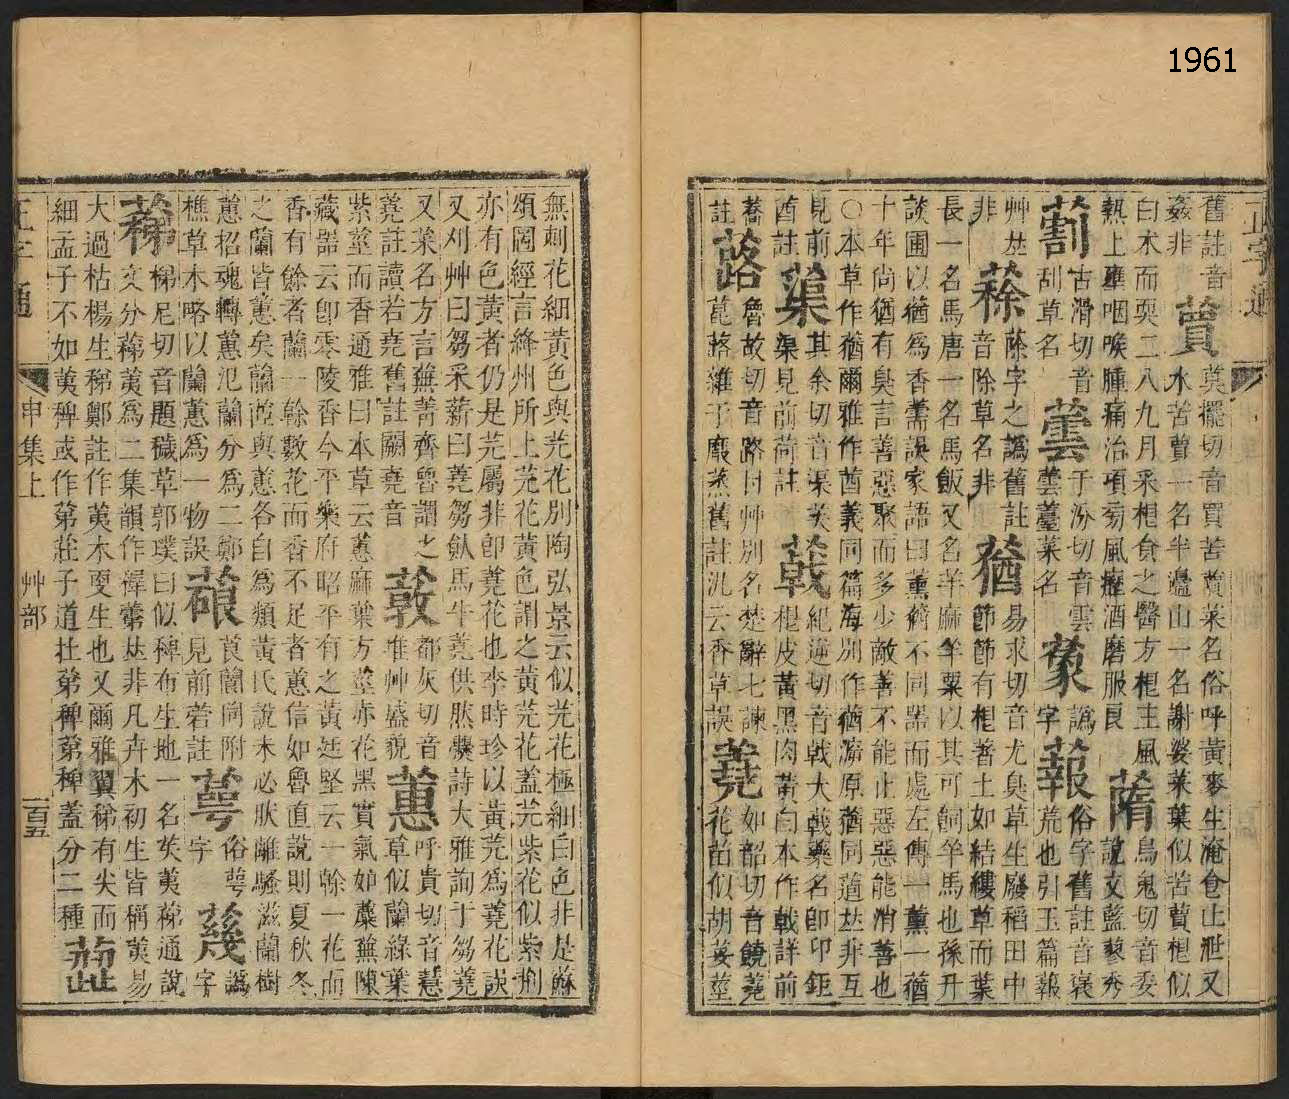 1961
正字通
舊註音
姦非
蕒莫擺切音買苦蕒菜名俗呼黃麥生淹食止泄又
水苦蕒一名半邊山一名謝婆菜葉似苦蕒根似
白朮而耎二八九月采根食之醫方根主風
熱上壅咽喉腫痛治項菊風癧酒磨服良
蓨鳥鬼切音委
說文藍蓼秀
䓯古滑切音
刮草名
蕓于汾切音雲
蕓薹菜名
蒙譌字
蕔俗字舊註音襃
荒也引玉篇蕔
艸𠀤
非
蒣蒢字之譌舊註
音除草名非
蕕易求切音尤臭草生廢稻田中
節節有根著土如結縷草而葉
長一名馬唐一名馬飯又名羊麻羊粟以其可飼羊馬也孫升
談圃以蕕爲香薷誤家語曰薰蕕不同器而處左傳一薰一蕕
十年尚猶有臭言善惡聚而多少敵善不能止惡惡能消善也
○本草作蕕爾雅作茜義同篇海別作蕕㵎原蕕同蓪𠀤非互
見前
茜註
蕖其余切音渠芙
蕖見前荷註
㦸紀逆切音戟大戟藥名卽卬鉅
根皮黃黑肉黃白本作戟詳前
蕎
註
蕗魯故切音路甘艸別名楚辭七諫
菎蕗雜于黀蒸舊註汎云香草誤
蕘如韶切音饒蕘
花苗似胡荽莖
無刺花細黃色與芫花別陶弘景云似芫花極細白色非是蘇
頌圖經言絳州所上芫花黃色謂之黃芫花蓋芫紫花似紫荆
亦有色黃者仍是芫屬非卽蕘花也李時珍以黃芫爲蕘花誤
又刈艸曰芻采薪曰蕘芻飤馬牛蕘供然爨詩大雅詢于芻蕘
又菜名方言蕪菁齊魯謂之
蕘註讀若堯舊註闕堯音
蔉都灰切音
堆艸盛貌
蕙呼貴切音慧
草似蘭綠葉
紫莖而香通雅曰本草云蕙麻葉方莖赤花黑實氣如蘼蕪陳
藏器云卽零陵香今平樂府昭平有之黃廷堅云一榦一花而
香有餘者蘭一榦數花而香不足者蕙信如魯直說則夏秋冬
之蘭皆蕙矣蘭茝與蕙各自爲類黃氏說未必然離騷滋蘭樹
蕙招魂轉蕙氾蘭分爲二鄭
樵草木略以蘭蕙爲一物誤
蒗莨䕞同附
見前菪註
蕚俗萼
字
蕿譌
字
䔶梯尼切音題穢草郭璞曰似稗布生地一名英荑䔶通說
文分䔶荑爲二集韻作稊虆𠀤非凡卉木初生皆稱荑易
大過枯楊生稊鄭註作荑木更生也又爾雅翼䔶有尖而
細孟子不如荑稗或作䔶莊子道在䔶稗䔶稗蓋分二種
正字通
申集上
艸部
一百五